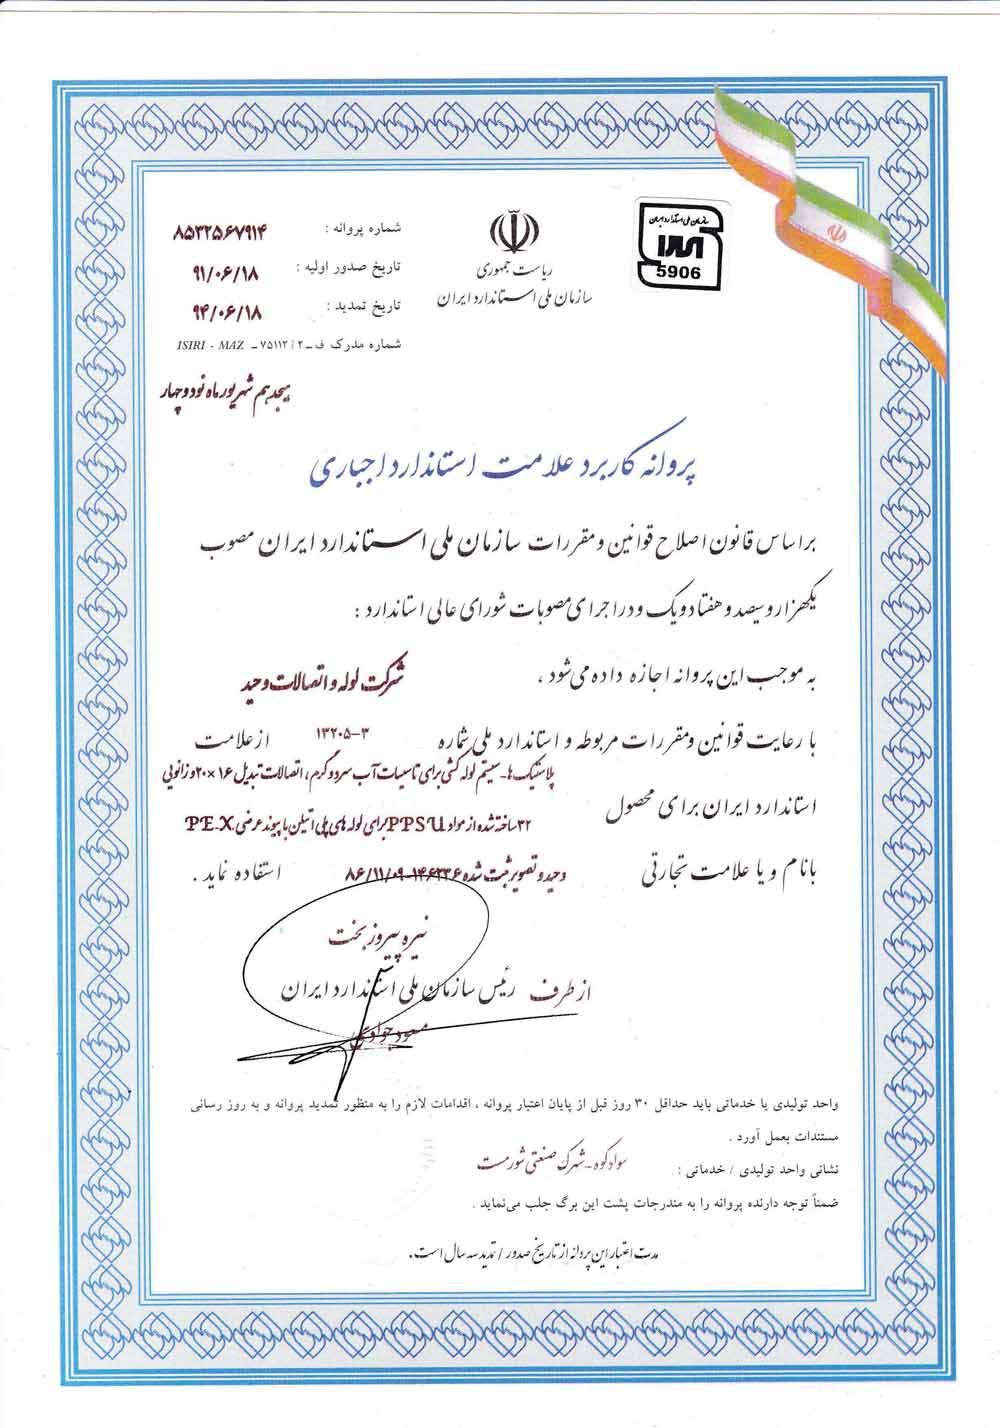 شماره پروانه : ۸۵۳۲۵۶۷۹۱۴
تاریخ صدور اولیه : ۹۱/۰۶/۱۸
تاریخ تمدید : ۹۴/۰۶/۱۸
شماره مدرک ف ـ ۲ / ۷۵۱۱۲ ـ ISIRI - MAZ
ریاست جمهوری
سازمان ملی استاندارد ایران
سازمان ملی استاندارد ایران
5906
هیجدهم شهریور ماه نود و چهار
پروانه کاربرد علامت استاندارد اجباری
براساس قانون اصلاح قوانین و مقررات سازمان ملی استاندارد ایران مصوب
یکهزار و سیصد و هفتاد و یک و در اجرای مصوبات شورای عالی استاندارد :
به موجب این پروانه اجازه داده می‌شود ، شرکت لوله و اتصالات وحید
با رعایت قوانین و مقررات مربوطه و استاندارد ملی شماره ۱۳۲۰۵-۳ از علامت
پلاستیک ها - سیستم لوله کشی برای تاسیسات آب سرد و گرم ، اتصالات تبدیل ۱۶×۲۰ و زانویی
استاندارد ایران برای محصول
۳۲ ساخته شده از مواد PPSU برای لوله های پلی اتیلن با پیوند عرضی PE-X
با نام و یا علامت تجارتی وحید و تصویر ثبت شده ۱۴۶۳۳۶-۸۶/۱۱/۰۹ استفاده نماید .
نیره پیروز بخت
از طرف رئیس سازمان ملی استاندارد ایران
مسعود جوادی
واحد تولیدی یا خدماتی باید حداقل ۳۰ روز قبل از پایان اعتبار پروانه ، اقدامات لازم را به منظور تمدید پروانه و به روز رسانی
مستندات بعمل آورد .
نشانی واحد تولیدی / خدماتی : سوادکوه - شهرک صنعتی شورمست
ضمناً توجه دارنده پروانه را به مندرجات پشت این برگ جلب می‌نماید .
مدت اعتبار این پروانه از تاریخ صدور / تمدید سه سال است .